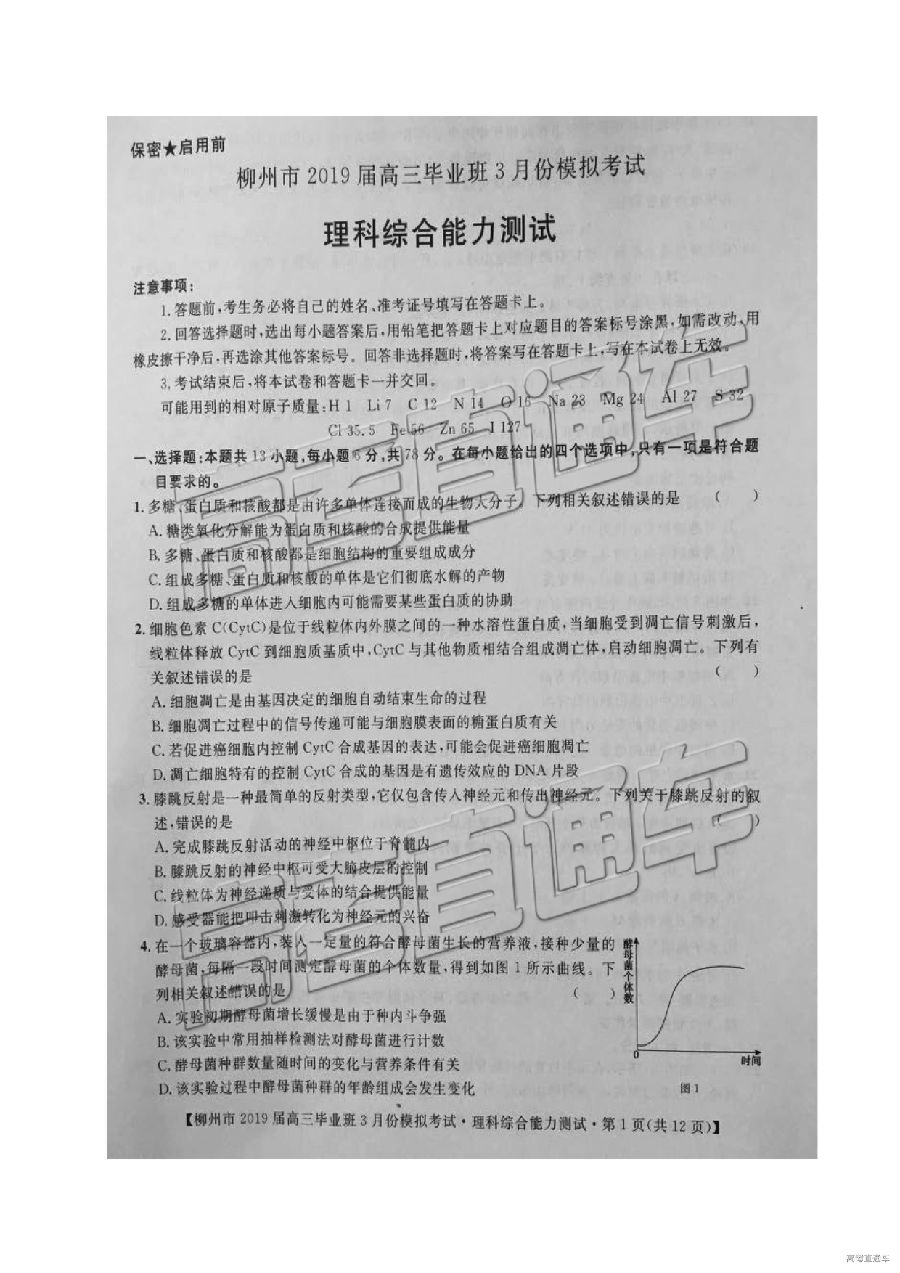 保密★启用前
柳州市 2019 届高三毕业班 3 月份模拟考试
理科综合能力测试
注意事项:
1.答题前,考生务必将自己的姓名、准考证号填写在答题卡上。
2.回答选择题时,选出每小题答案后,用铅笔把答题卡上对应题目的答案标号涂黑,如需改动,用
橡皮擦干净后,再选涂其他答案标号。回答非选择题时,将答案写在答题卡上,写在本试卷上无效。
3.考试结束后,将本试卷和答题卡一并交回。
可能用到的相对原子质量:H 1 Li 7 C 12 N 14 O 16 Na 23 Mg 24 Al 27 S 32
Cl 35.5 Fe 56 Zn 65 I 127
一、选择题:本题共 13 小题,每小题 6 分,共 78 分。在每小题给出的四个选项中,只有一项是符合题
目要求的。
1.多糖、蛋白质和核酸都是由许多单体连接而成的生物大分子。下列相关叙述错误的是 ( )
A.糖类氧化分解能为蛋白质和核酸的合成提供能量
B.多糖、蛋白质和核酸都是细胞结构的重要组成成分
C.组成多糖、蛋白质和核酸的单体是它们彻底水解的产物
D.组成多糖的单体进入细胞内可能需要某些蛋白质的协助
2.细胞色素 C(CytC)是位于线粒体内外膜之间的一种水溶性蛋白质,当细胞受到凋亡信号刺激后,
线粒体释放 CytC 到细胞质基质中,CytC 与其他物质相结合组成凋亡体,启动细胞凋亡。下列有
关叙述错误的是 ( )
A.细胞凋亡是由基因决定的细胞自动结束生命的过程
B.细胞凋亡过程中的信号传递可能与细胞膜表面的糖蛋白质有关
C.若促进癌细胞内控制 CytC 合成基因的表达,可能会促进癌细胞凋亡
D.凋亡细胞特有的控制 CytC 合成的基因是有遗传效应的 DNA 片段
3.膝跳反射是一种最简单的反射类型,它仅包含传入神经元和传出神经元。下列关于膝跳反射的叙
述,错误的是 ( )
A.完成膝跳反射活动的神经中枢位于脊髓内
B.膝跳反射的神经中枢可受大脑皮层的控制
C.线粒体为神经递质与受体的结合提供能量
D.感受器能把叩击刺激转化为神经元的兴奋
4.在一个玻璃容器内,装入一定量的符合酵母菌生长的营养液,接种少量的
酵母菌,每隔一段时间测定酵母菌的个体数量,得到如图 1 所示曲线。下
列相关叙述错误的是 ( )
A.实验初期酵母菌增长缓慢是由于种内斗争强
B.该实验中常用抽样检测法对酵母菌进行计数
C.酵母菌种群数量随时间的变化与营养条件有关
D.该实验过程中酵母菌种群的年龄组成会发生变化
酵母菌个体数
时间
图 1
【柳州市 2019 届高三毕业班 3 月份模拟考试·理科综合能力测试·第 1 页(共 12 页)】
高考直通车
高考直通车
高考直通车